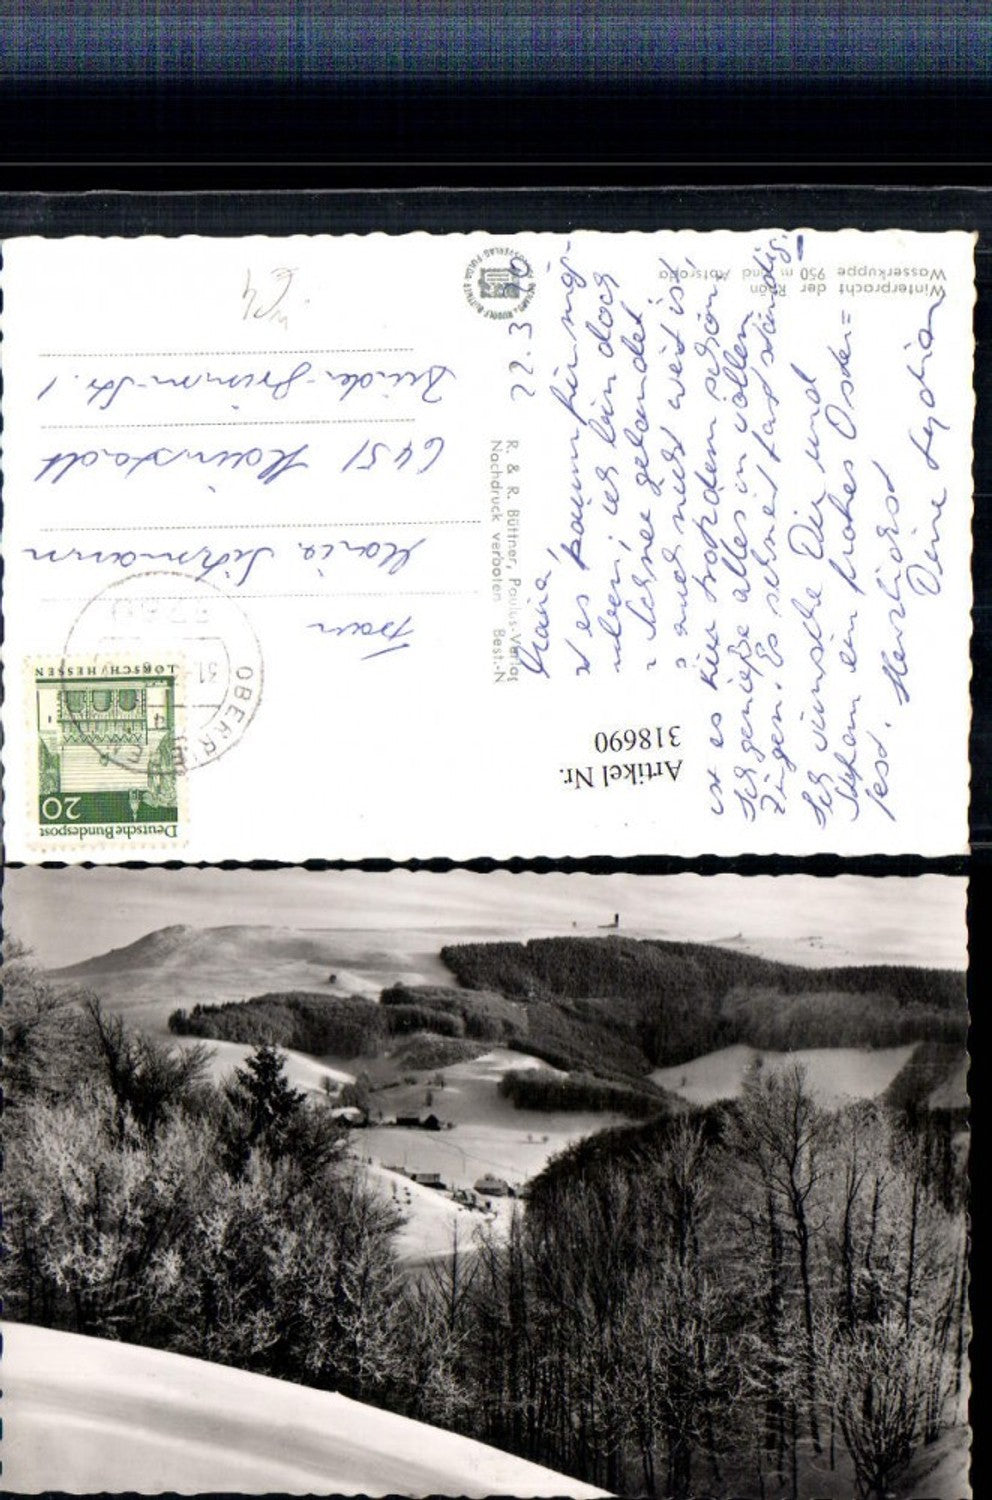 Winterpracht der Rhön
Wasserkuppe 950 m und Abtsroda
22.3.70
Maria,
es kaum für mög-
ich bin doch
Schnee gelandet
auch nicht weit ist,
ist es hier trotzdem schön.
Ich genieße alles in vollen
Zügen. Es schneit fast ständig.
Ich wünsche Dir und
Stefan ein frohes Oster=
fest. Herzlichst
Deine Lydia
R. & R. Büttner, Paulus-Verlag
Nachdruck verboten Best.-N
Deutsche Bundespost
20
LORSCH/HESSEN
31.
OBERR
Frau
Maria
6451 Hainstadt
Brüder-Grimm-Str. 1
Artikel Nr.
318690